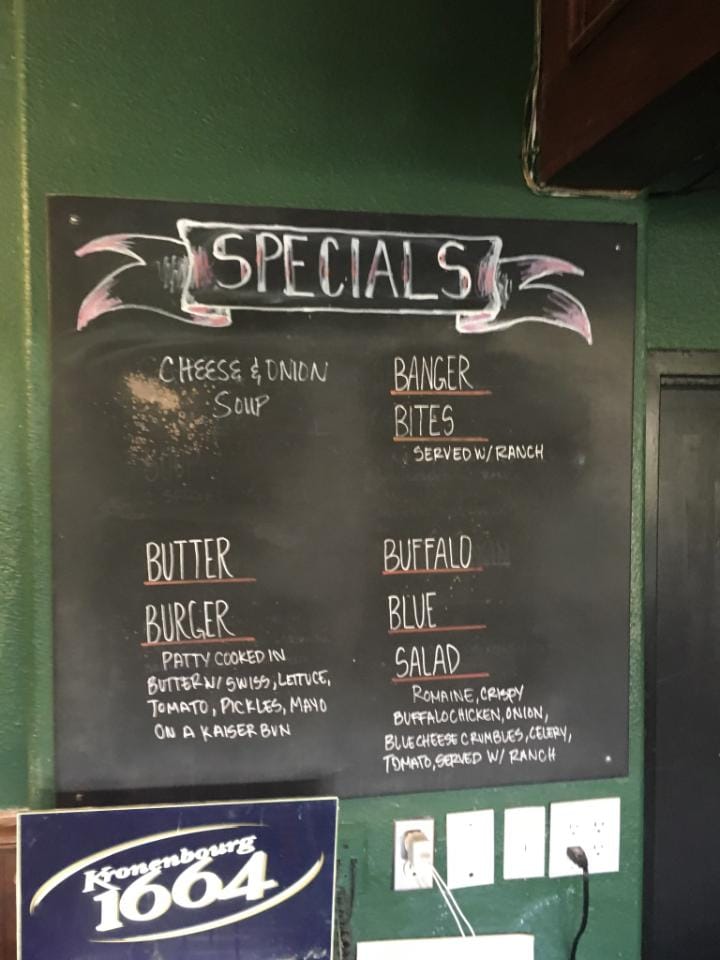 SPECIALS
CHEESE & ONION
SOUP
BANGER
BITES
SERVED W/ RANCH
BUTTER
BURGER
PATTY COOKED IN
BUTTER W/ SWISS, LETTUCE,
TOMATO, PICKLES, MAYO
ON A KAISER BUN
BUFFALO
BLUE
SALAD
ROMAINE, CRISPY
BUFFALO CHICKEN, ONION,
BLUE CHEESE CRUMBLES, CELERY,
TOMATO, SERVED W/ RANCH
Kronenbourg
1664